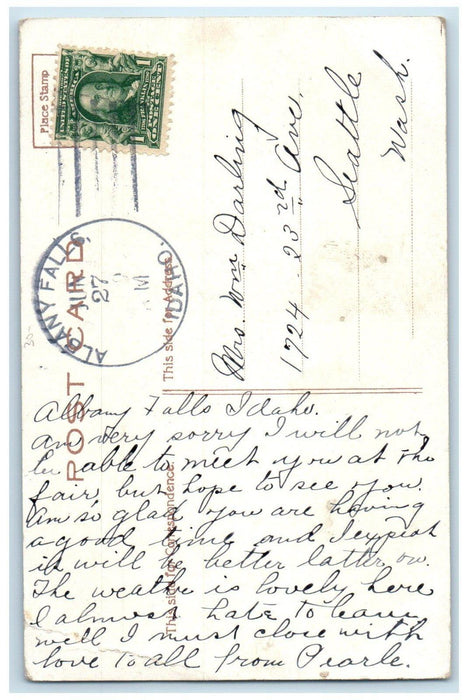 Place Stamp
ALBANY FALLS,
JUN
27
M
IDAHO.
POST CARD
This side for Address.
This side for Correspondence.
Mrs. Wm Darling
1724 - 23rd Ave.
Seattle
Wash.
Albany Falls Idaho.
am very sorry I will not
be able to meet you at the
fair, but hope to see you.
Am so glad you are having
a good time and I expect
it will be better latter on.
The weathe is lovely here
I almost hate to leave
well I must close with
love to all from Pearle.